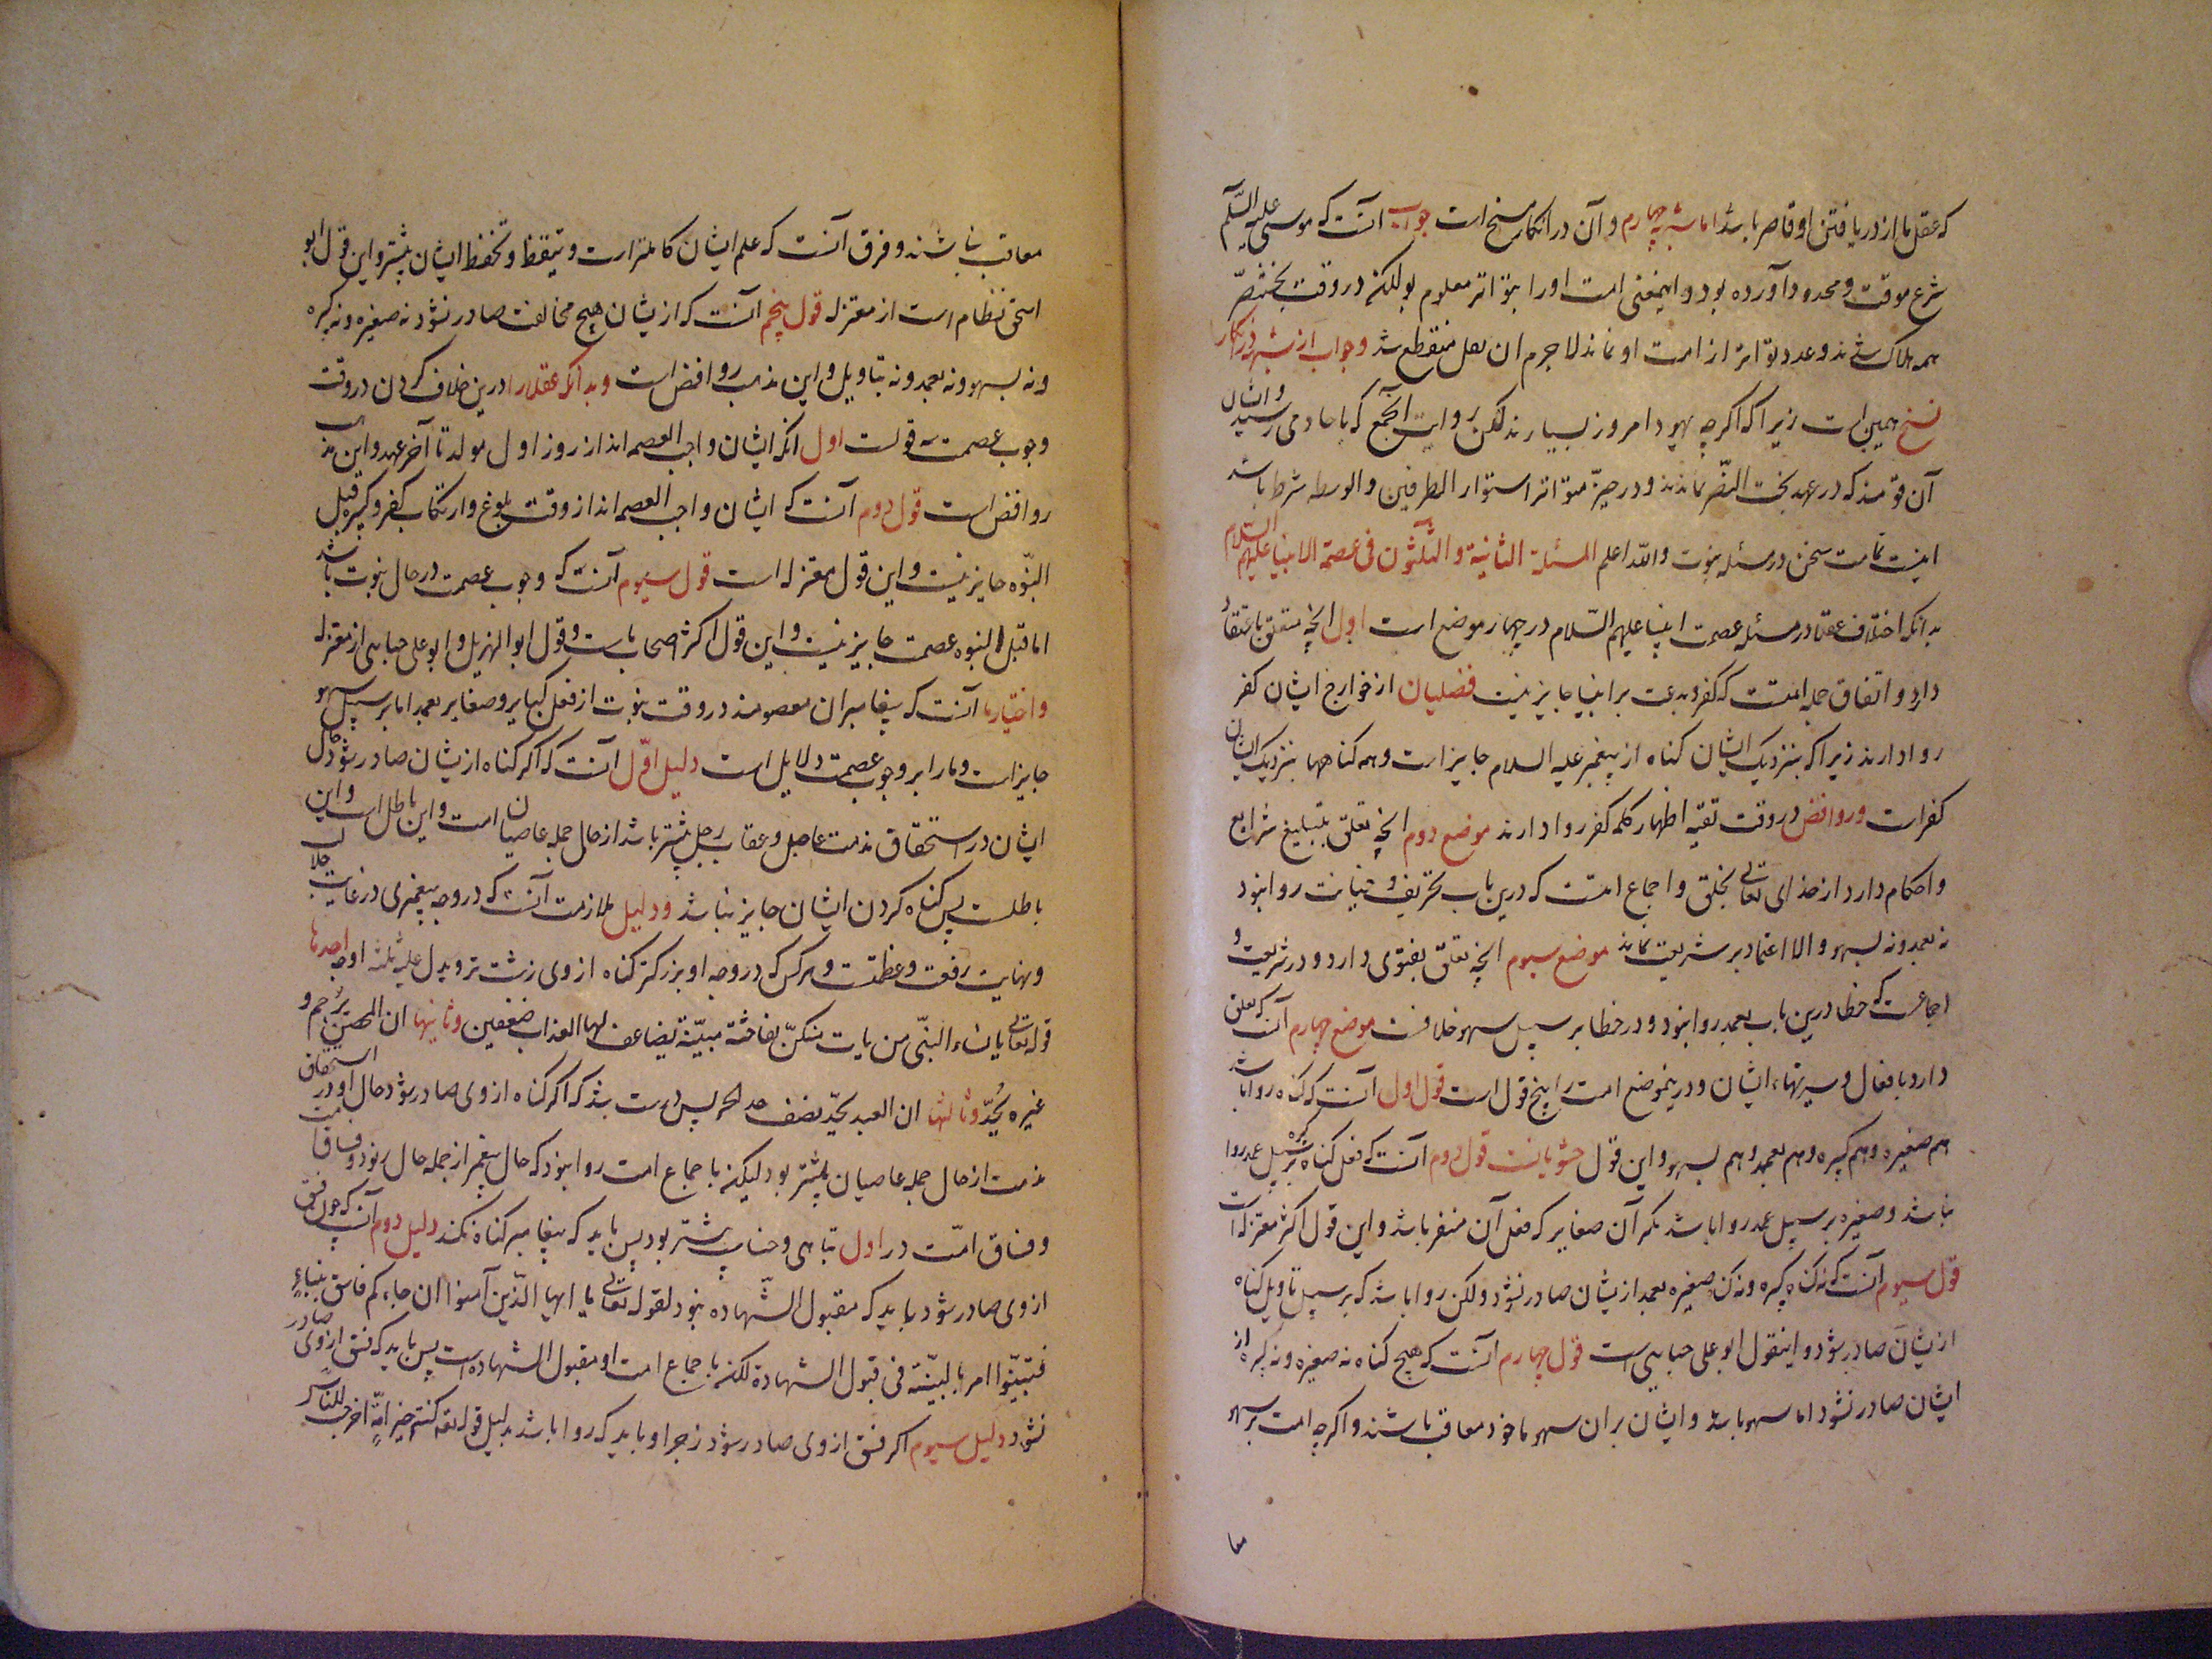 که عقل ما از دریافتن او قاصر باشد اما شبهه چهارم و آن در انکار نسخ است جواب آنست که موسی علیه السّلم
شرع موقت و محدود آورده بود و اینمعنی امت او را بتواتر معلوم بود لکن در وقت بختنصّر
همه هلاک شدند و عدد تواتر از امت او نماند لاجرم ان نقل منقطع شد و جواب از شبهه در انکار
نسخ همین است زیرا که اگرچه یهود امروز بسیارند لکن روایت آن جمع که با حاد می رسید و ایشان
آن قومند که در عهد بخت النصّر نماندند و در خبر متواتر استواء الطرفین و الواسطه شرط باشد
اینست تمامت سخن در مسئله نبوت والله اعلم المسئلة الثانیة والثلثون فی عصمة الانبیا علیهم السلام
بدانکه اختلاف عقلا در مسئله عصمت انبیا علیهم السّلام در چهار موضع است اول انچه متعلق باعتقاد
دارد و اتفاق جمله امتست که کفر و بدعت بر انبیا جایز نیست فضلیان از خوارج ایشان کفر
روا دارند زیرا که بنزدیک ایشان کناه از پیغمبر علیه السلام جایز است و همه کناهها بنزدیک ایشان
کفر است و روافض در وقت تقیه اظهار کلمه کفر روا دارند موضع دوم انچه تعلق بتبلیغ شرایع
و احکام دارد از خدای تعالی بخلق و اجماع امتست که درین باب تحریف و خیانت روا نبود
نه بعمد و نه بسهو و الا اعتماد بر شریعت نماند موضع سیوم انچه تعلق بفتوی دارد و در شریعت و
اجماعست که خطا درین باب بعمد روا نبود و در خطا بر سبیل سهو خلافست موضع چهارم آنست که تعلق
دارد بافعال و سیرتهاء ایشان و درینموضع امت را پنج قول است قول اول آنست که کناه روا باشد
هم صغیره و هم کبیره و هم بعمد و هم بسهو و این قول حشویانست قول دوم آنست که فعل کناه کبیره بر سبیل عمد روا
نباشد و صغیره بر سبیل عمد روا باشد مکر آن صغایر که فعل آن منفر باشد و این قول اکثر معتزله است
قول سیوم آنست که نه کناه کبیره و نه کناه صغیره بعمد ازیشان صادر نشود ولکن روا باشد که بر سبیل تاویل کناه
ازیشان صادر شود و اینقول ابو علی جبایی است قول چهارم آنست که هیچ کناه نه صغیره و نه کبیره از
ایشان صادر نشود اما سهو باشد و ایشان بران سهو ماخوذ و معاقب باشند و اکرچه امت بر سهو
معا
معاقب نباشند و فرق آنست که علم ایشان کاملتر است و تیقظ و تحفظ ایشان بیشتر و این قول ابو
اسحق نظام است از معتزله قول پنجم آنست که ازیشان هیچ مخالفت صادر نشود نه صغیره و نه کبیره
و نه بسهو و نه بعمد و نه بتاویل و این مذهب روافض است و بدانکه عقلا را درین خلاف کردن در وقت
وجوب عصمت سه قولست اول انکه ایشان واجب العصمه اند از روز اول مولد تا آخر عهد و این مذهب
روافض است قول دوم آنست که ایشان واجب العصمه اند از وقت بلوغ و ارتکاب کفر و کبیره قبل
النبوّه جایز نیست و این قول معتزله است قول سیوم آنست که وجوب عصمت در حال نبوت باشد
اما قبل النبوه عصمت جایز نیست و این قول اکثر اصحاب ماست و قول ابو الهزیل و ابو علی جبایی از معتزله
و اختیار ما آنست که پیغامبران معصومند در وقت نبوت از فعل کبایر و صغایر بعمد اما بر سبیل سهو
جایز است و ما را بر وجوب عصمت دلایل است دلیل اوّل آنست که اکر کناه ازیشان صادر شود حال
ایشان در استحقاق مذمت عاجل و عقاب آجل بیشتر باشد از حال جمله عاصیان امت و این باطل است و این
باطلست پس کناه کردن ایشان جایز نباشد و دلیل ملازمت آنست که درجه پیغمبری در غایت جلالت
و نهایت رفعت و عظمتست و هرکس که درجه او بزرکتر کناه از وی زشت تر و یدل علیه ثلثه اوجه احدها
قوله تعالی یا نساء النبی من یات منکنّ بفاحشة مبیّنة یضاعف لها العذاب ضعفین و ثانیها ان المحصن یرجم و
غیره یحدّ و ثالثها ان العبد یحدّ نصف حد الحر پس درست شد که اکر کناه از وی صادر شود حال او در استحقاق
مذمت از حال جمله عاصیان بیشتر بود لیکن باجماع امت روا نبود که حال پیغمبر از جمله حال زنود و فساق امت
و فساق امّت در اول تباهی و حساب بیشتر بود پس باید که پیغامبر کناه نکند دلیل دوم آنست که چون فسق
از وی صادر شود باید که مقبول الشّهاده نبود لقوله تعالی یا ایها الذّین آمنوا ان جاءکم فاسق بنباءٍ
فتبیّنوا امر بالبیّنه فی قبول الشهادة لکن باجماع امت او مقبول الشهاده است پس باید که فسق از وی صادر
نشود دلیل سیوم اکر فسق از وی صادر شود زجر او باید که روا باشد بدلیل قوله تعالی کنتم خیر امّةٍ اخرجت للنّاس